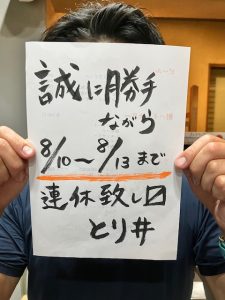 誠に勝手
ながら
8/10〜8/13まで
連休致し〼
とり井